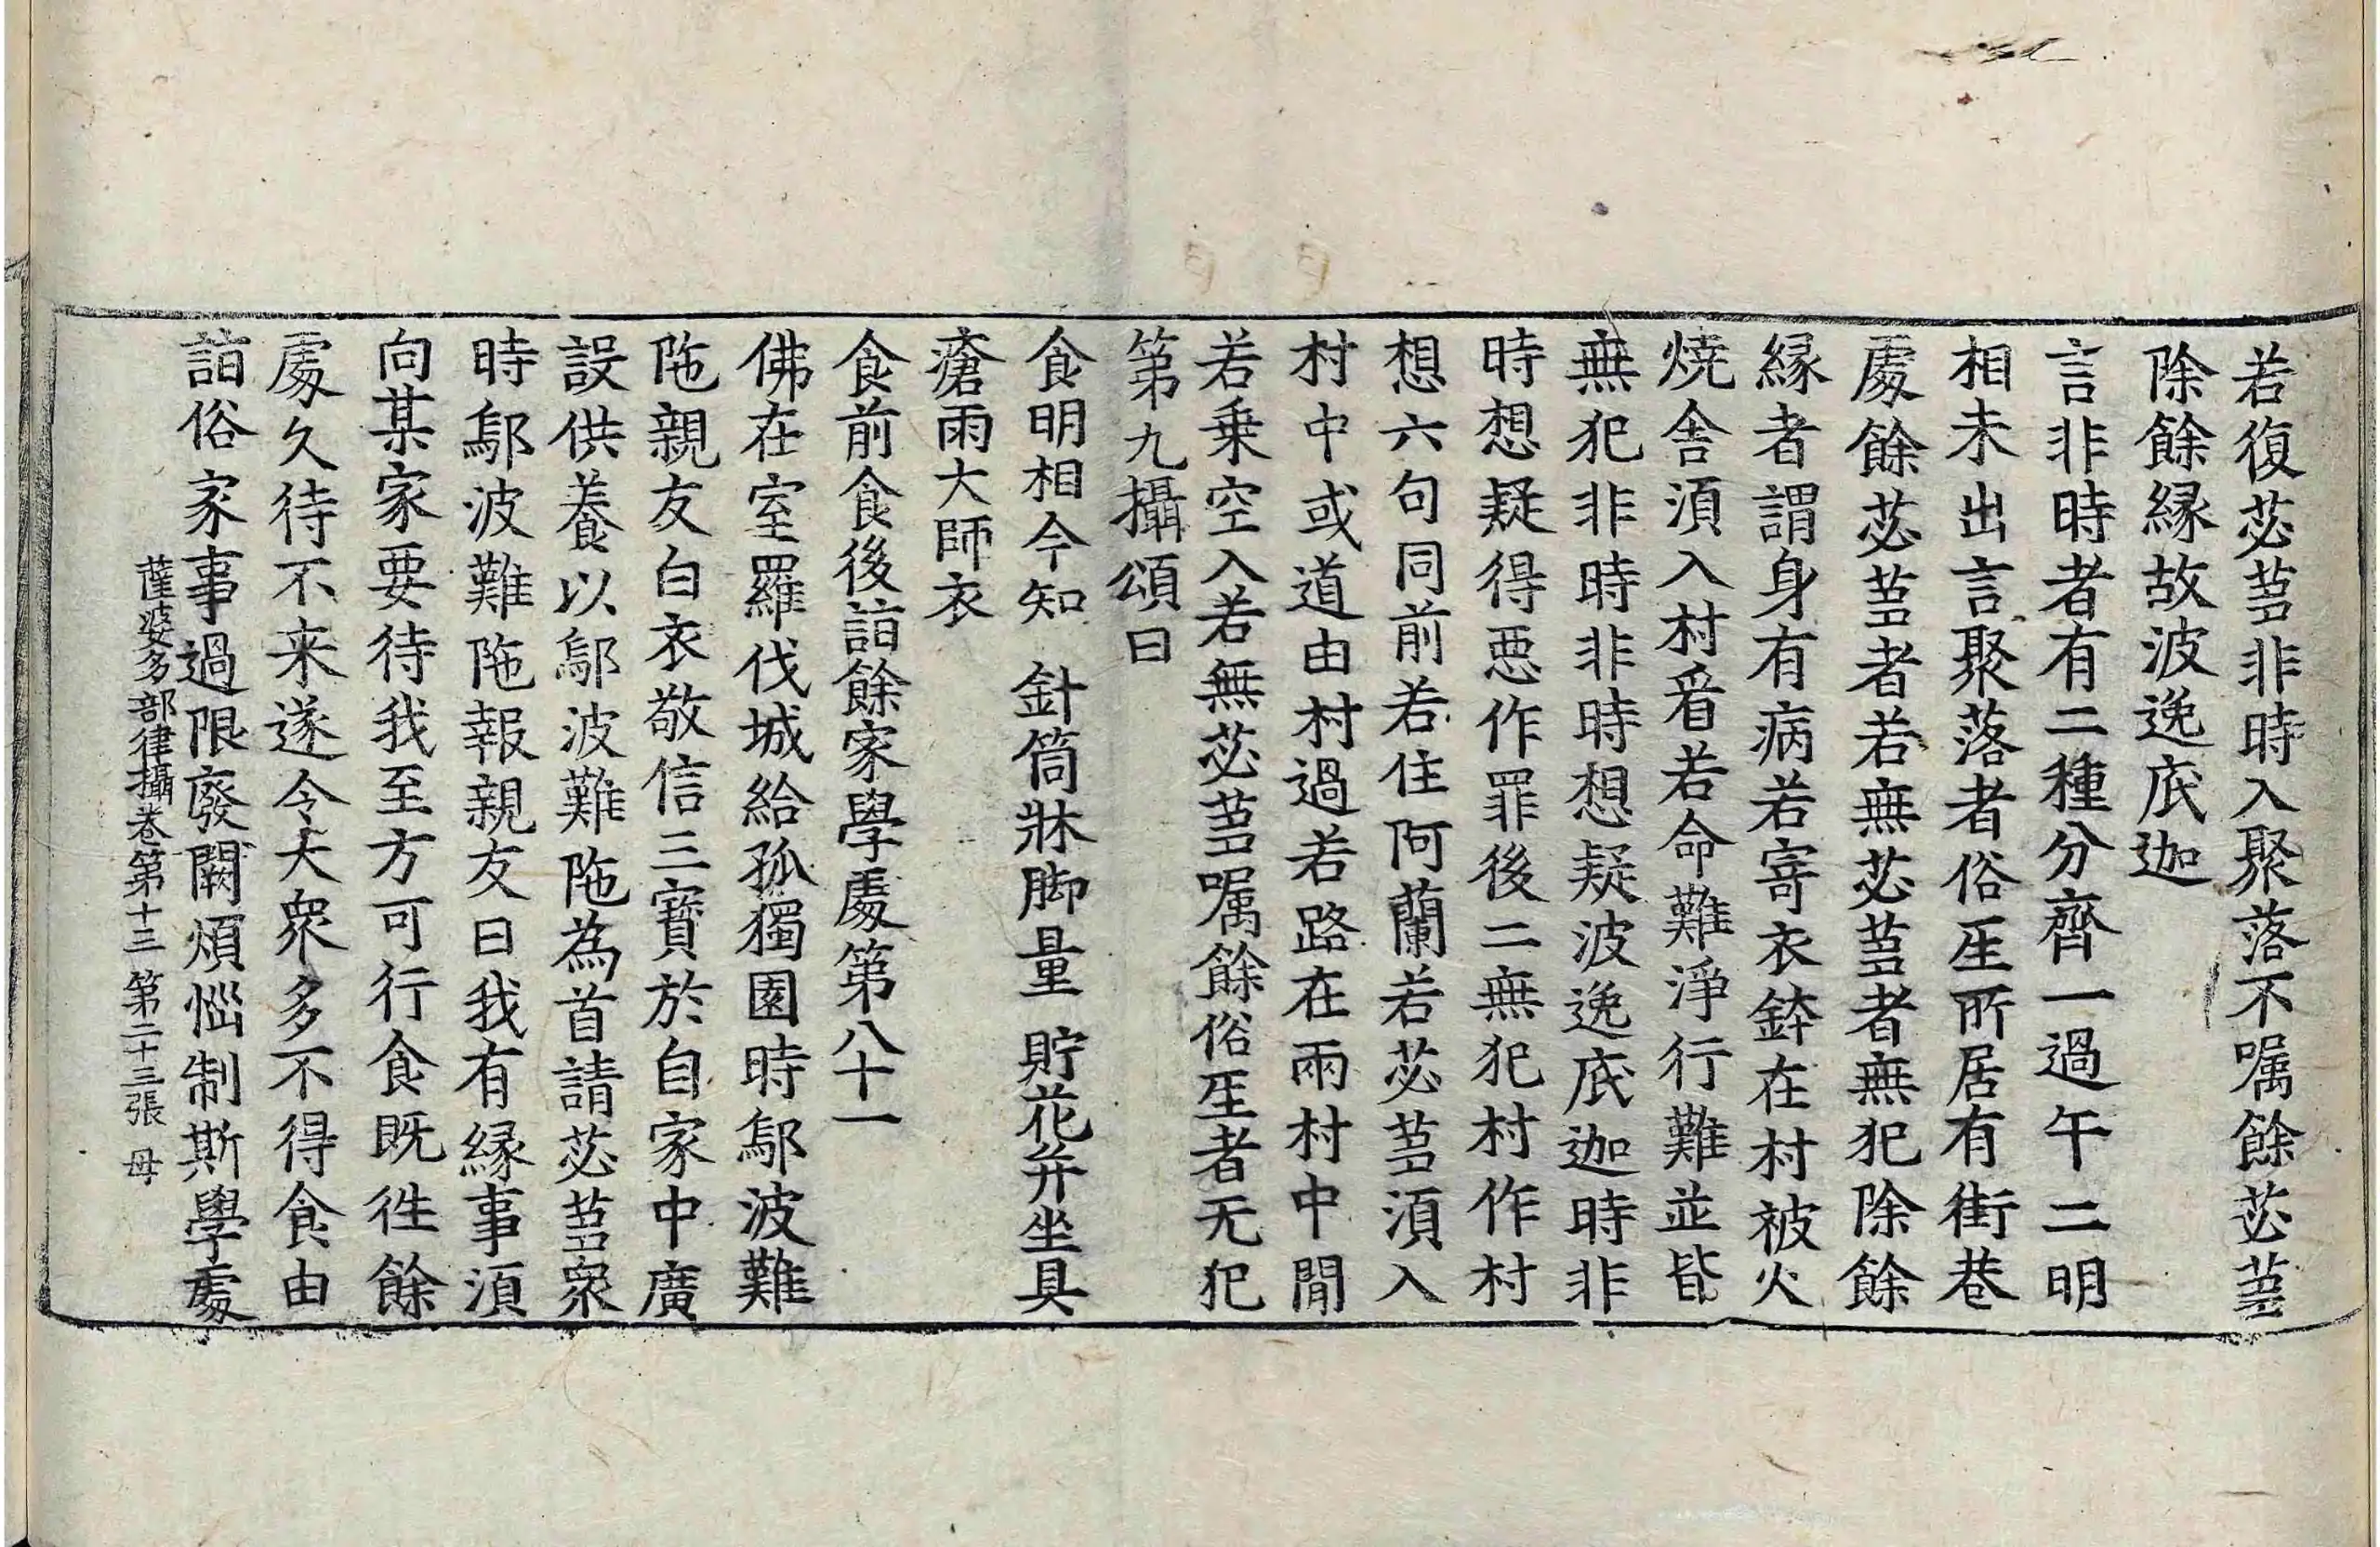 若復苾芻非時入聚落不囑餘苾芻
除餘緣故波逸底迦
言非時者有二種分齊一過午二明
相未出言聚落者俗生所居有街巷
處餘苾芻者若無苾芻者無犯除餘
緣者謂身有病若寄衣鉢在村被火
燒舍須入村看若命難淨行難並皆
無犯非時非時想疑波逸底迦時非
時想疑得惡作罪後二無犯村作村
想六句同前若住阿蘭若苾芻須入
村中或道由村過若路在兩村中間
若乘空入若無苾芻囑餘俗生者无犯
第九攝頌曰
食明相今知 針筒牀脚量 貯花并坐具
瘡雨大師衣
食前食後詣餘家學處第八十一
佛在室羅伐城給孤獨園時鄔波難
陁親友白衣敬信三寶於自家中廣
設供養以鄔波難陁為首請苾芻衆
時鄔波難陁報親友曰我有緣事須
向某家要待我至方可行食既徃餘
處久待不来遂令大衆多不得食由
詣俗家事過限廢闕煩惱制斯學處
薩婆多部律攝卷第十三 第二十三張 母